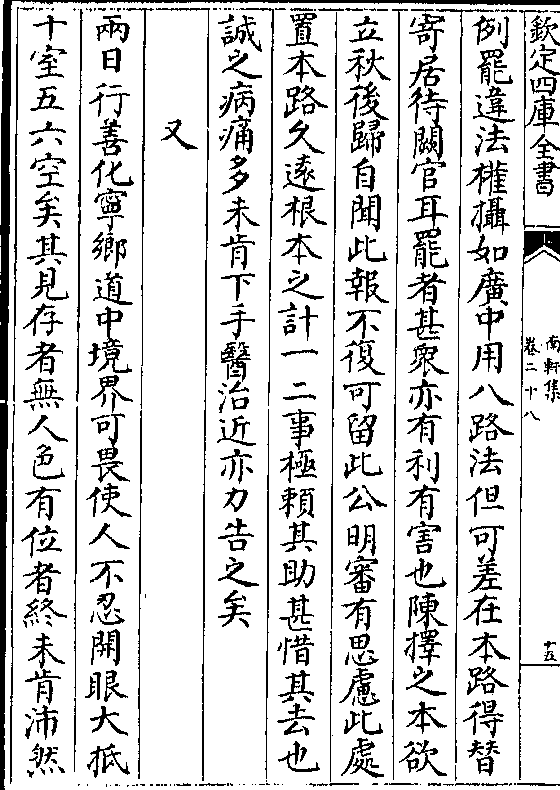 欽定四庫全書
南軒集
卷二十八
十五
例罷違法權攝如廣中用八路法但可差在本路得替
寄居待闕官耳罷者甚衆亦有利有害也陳擇之本欲
立秋後歸自聞此報不復可留此公明審有思慮此處
置本路久遠根本之計一二事極賴其助甚惜其去也
誠之病痛多未肯下手醫治近亦力告之矣
又
兩日行善化寧鄉道中境界可畏使人不忍開眼大抵
十室五六空矣其見存者無人色有位者終未肯沛然